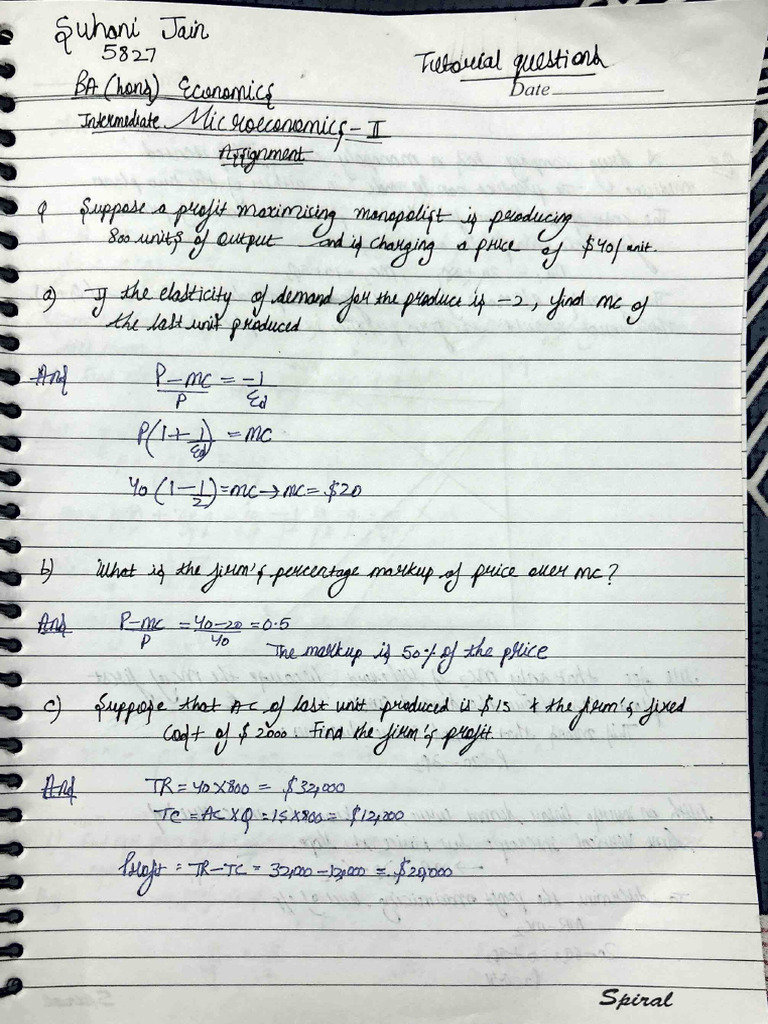 Suhani Jain
5827
Tutorial questions
Date
BA (hons) Economics
Intermediate Microeconomics - II
Assignment
Q Suppose a profit maximising monopolist is producing
800 units of output and is charging a price of $40/unit.
a) If the elasticity of demand for the produce is -2, find mc of
the last unit produced
Ans P-mc/P = -1/Ed
P(1+1/Ed) = mc
40(1-1/2)=mc→mc=$20
b) What is the firm's percentage markup of price over mc?
Ans P-mc/P = 40-20/40 = 0.5
The markup is 50% of the price
c) Suppose that AC of last unit produced is $15 & the firm's fixed
cost of $2000. Find the firm's profit
Ans TR = 40×800 = $32,000
TC = AC×Q = 15×800 = $12,000
Profit = TR-TC = 32,000-12,000 = $20,000
Spiral